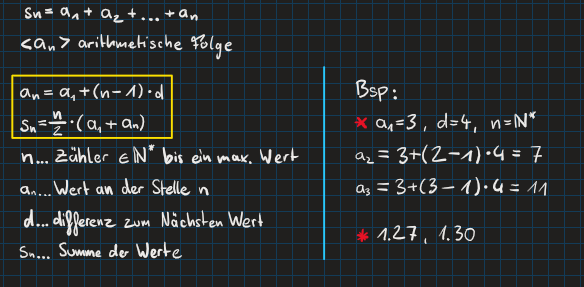 sₙ = a₁ + a₂ + ... + aₙ
<aₙ> arithmetische Folge
aₙ = a₁ + (n - 1) · d
sₙ = n/2 · (a₁ + aₙ)
n... Zähler ∈ ℕ* bis ein max. Wert
aₙ... Wert an der Stelle n
d... differenz zum Nächsten Wert
sₙ... Summe der Werte
Bsp:
* a₁=3, d=4, n=ℕ*
a₂ = 3+(2-1)·4 = 7
a₃ = 3+(3-1)·4 = 11
* 1.27, 1.30